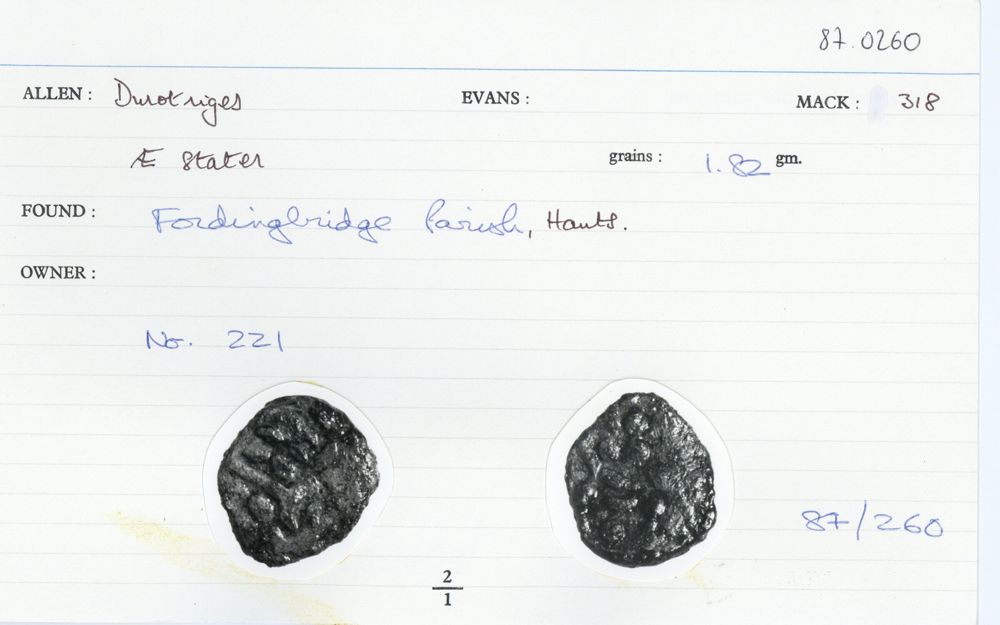 87.0260
ALLEN : Durotriges EVANS : MACK : 318
Æ Stater grains : 1.82 gm.
FOUND : Fordingbridge Parish, Hants.
OWNER :
No. 221
87/260
2
1